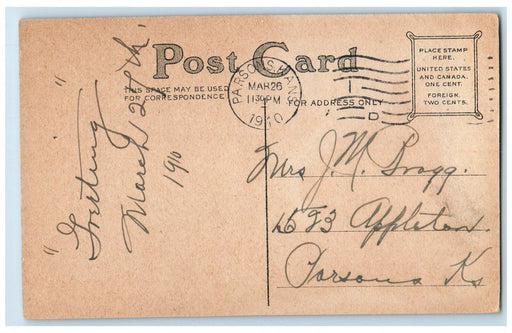 Post Card
THIS SPACE MAY BE USED
FOR CORRESPONDENCE
FOR ADDRESS ONLY
PLACE STAMP
HERE.
UNITED STATES
AND CANADA,
ONE CENT.
FOREIGN,
TWO CENTS.
PARSONS, KANS.
MAR 26
1130PM
1910
"Greeting"
March 26th
1910
Mrs J. M. Bragg.
Appleton.
Parsons Ks